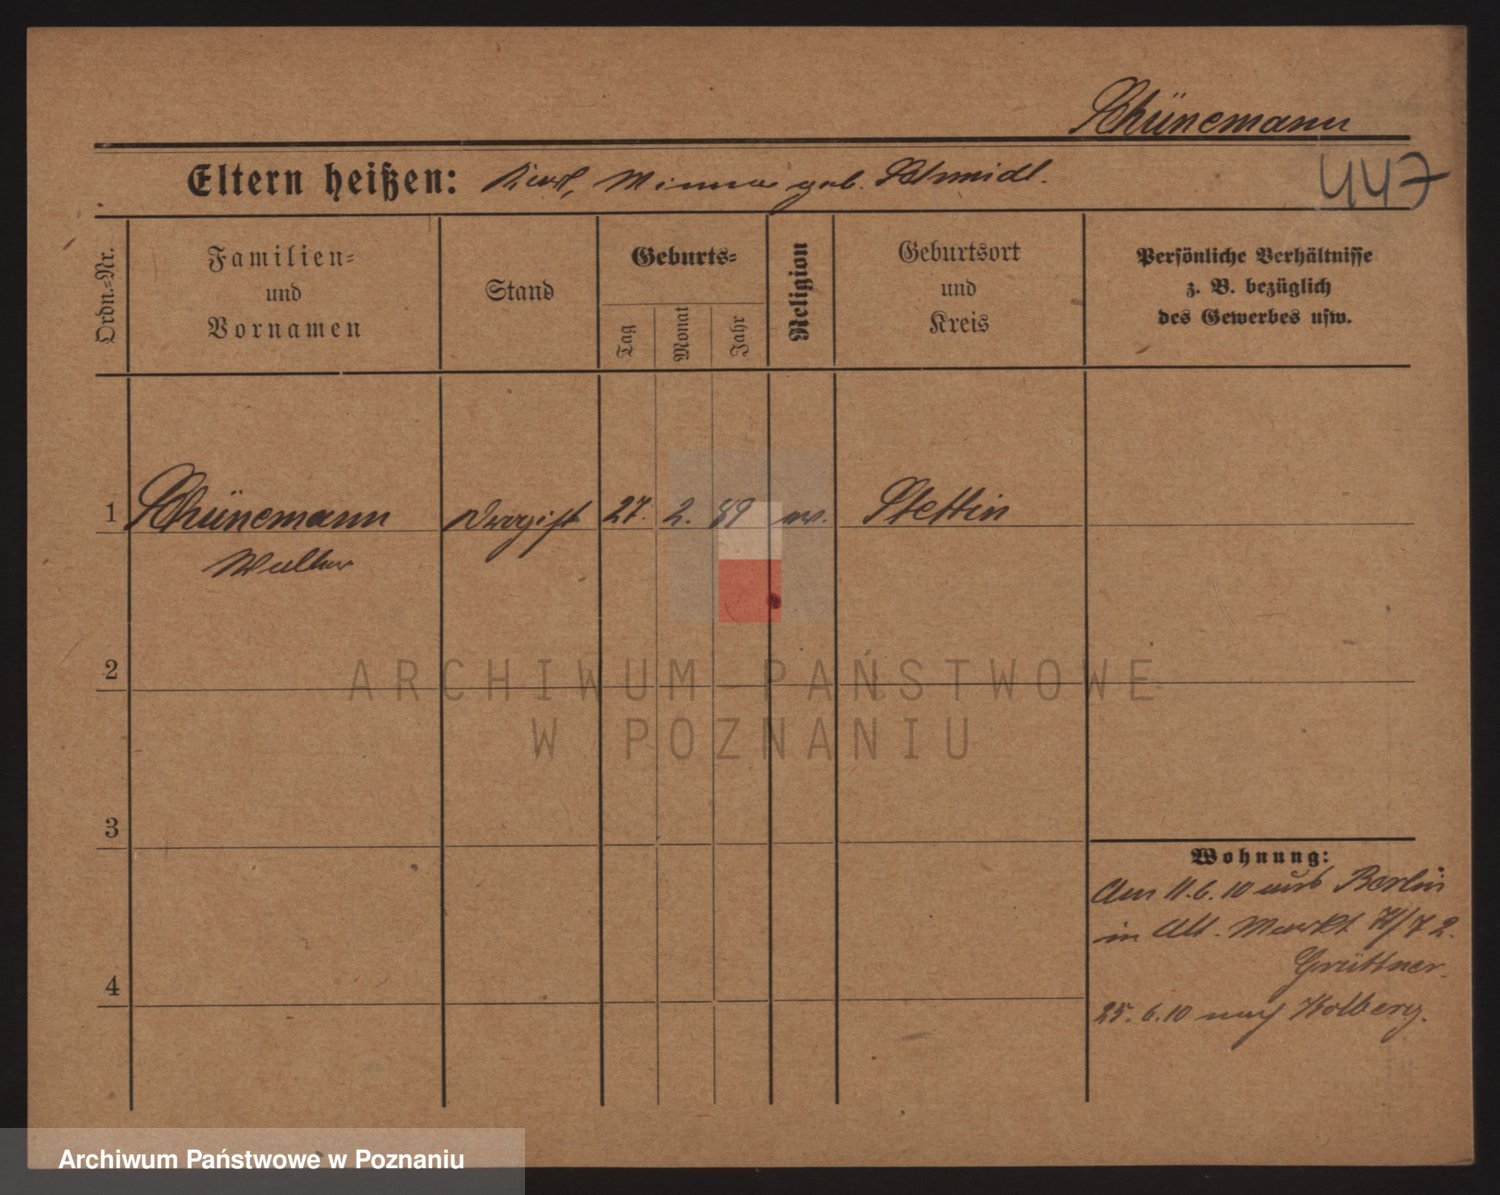 Schünemann
447
Eltern heißen: Karl, Minna geb. Schmidt.
Ordn.=Nr.
Familien=
und
Vornamen
Stand
Geburts=
Tag
Monat
Jahr
Religion
Geburtsort
und
Kreis
Persönliche Verhältnisse
z. B. bezüglich
des Gewerbes usw.
1 Schünemann Drogist 27. 2. 89 ev. Stettin
Walther
2
3
4
Wohnung:
Am 11.6.10 aus Berlin
in Alt. Markt 2.
Grüttner.
25.6.10 nach Kolberg.
ARCHIWUM PAŃSTWOWE
W POZNANIU
Archiwum Państwowe w Poznaniu